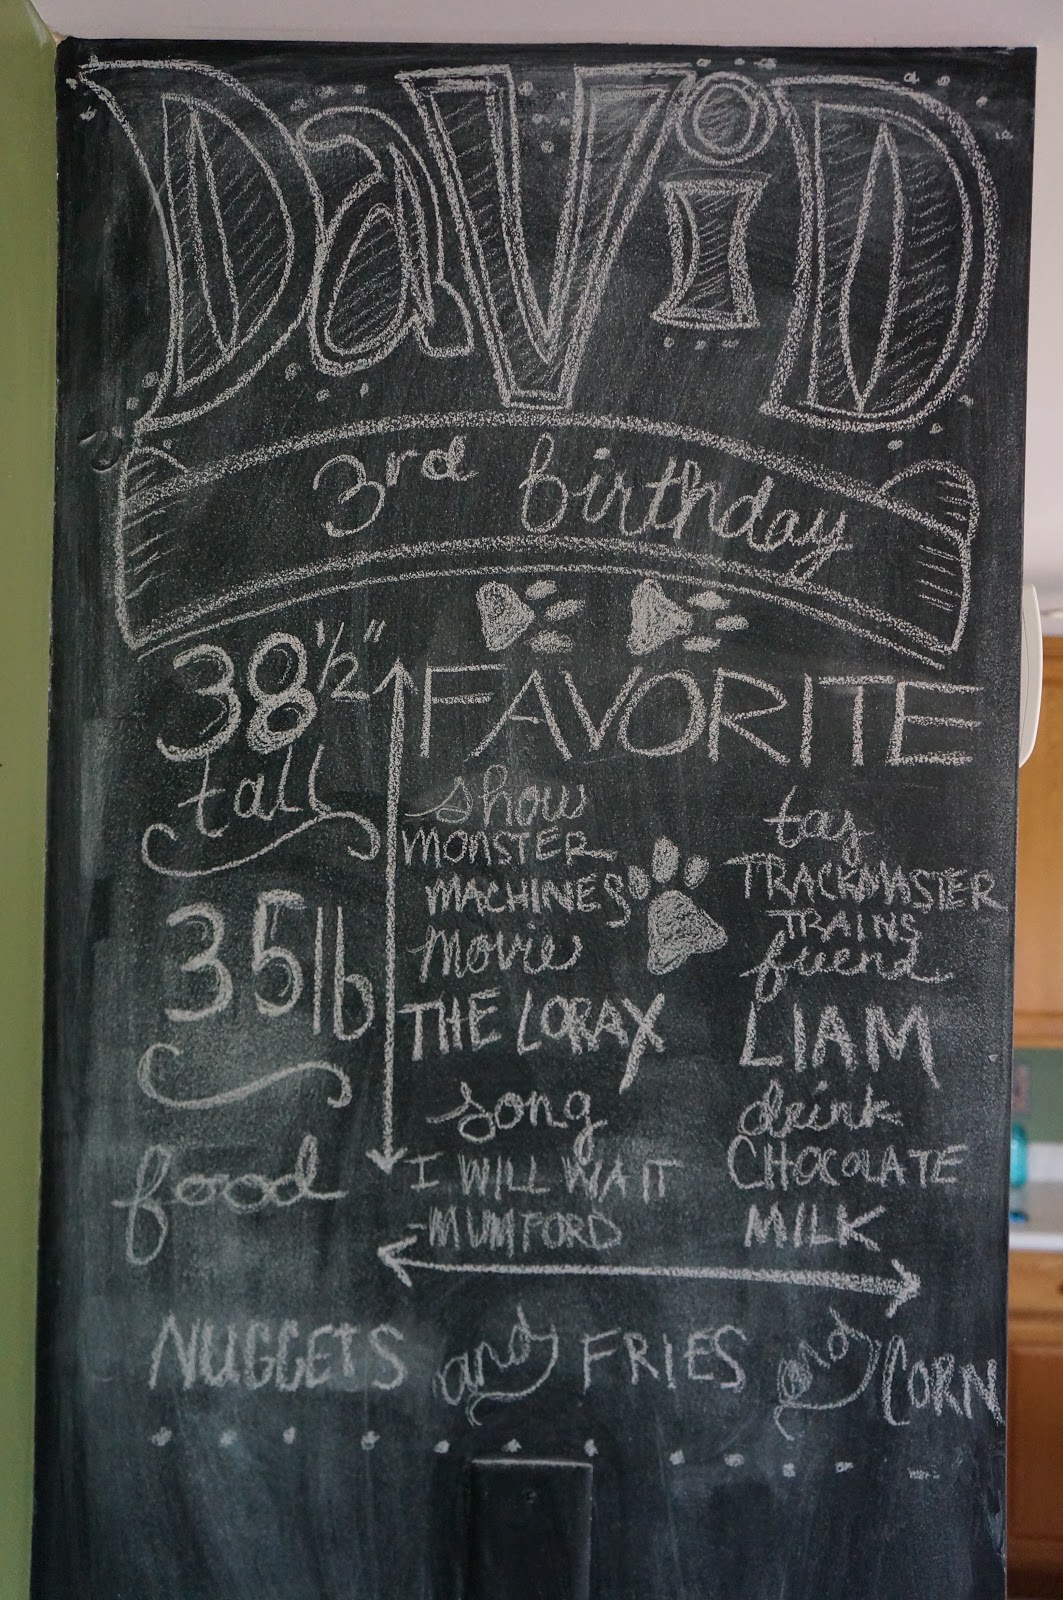 DaViD
3rd birthday
38 1/2"
tall
35lb
FAVORITE
show
MONSTER
MACHINES
movie
THE LORAX
song
I WILL WAIT
-MUMFORD
toy
TRACKMASTER
TRAINS
friend
LIAM
drink
CHOCOLATE
MILK
food
NUGGETS and FRIES and CORN